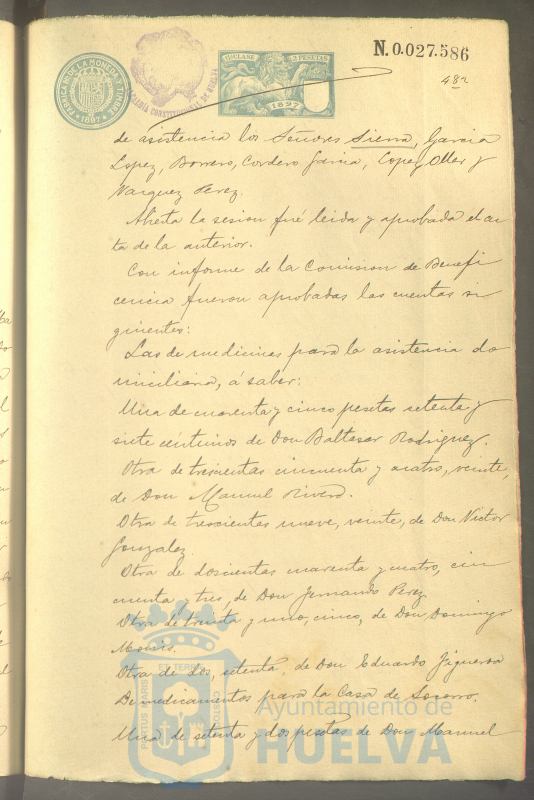 FABRICA DE LA MONEDA Y TIMBRE
1897
ALCALDIA CONSTITUCIONAL DE HUELVA
11ª CLASE 2 PESETAS
1897
N.0.027.586
de asistencia los Señores Sierra, Garcia
Lopez, Borrero, Cordero Garcia, Lopez Oller y
Vazquez Perez.
Abierta la sesion fué leida y aprobada el ac
ta de la anterior.
Con informe de la Comision de Benefi
cencia fueron aprobadas las cuentas si
guientes:
Las de medicinas para la asistencia do
miciliaria, á saber:
Una de cuarenta y cinco pesetas setenta y
siete centimos de Don Baltasar Rodriguez.
Otra de trescientas cincuenta y cuatro, veinte,
de Don Manuel Rivero.
Otra de trescientas nueve, veinte, de Don Victor
Gonzalez
Otra de doscientas cuarenta y cuatro, cin
cuenta y tres, de Don Fernando Perez.
Otra de treinta y uno, cinco, de Don Domingo
Otra de dos, setenta, de Don Eduardo Figueroa
De medicamentos para la Casa de Socorro.
Una de setenta y dos pesetas de Don Manuel
PORTUS MARIS ET TERRE CUSTODIA
Ayuntamiento de
HUELVA